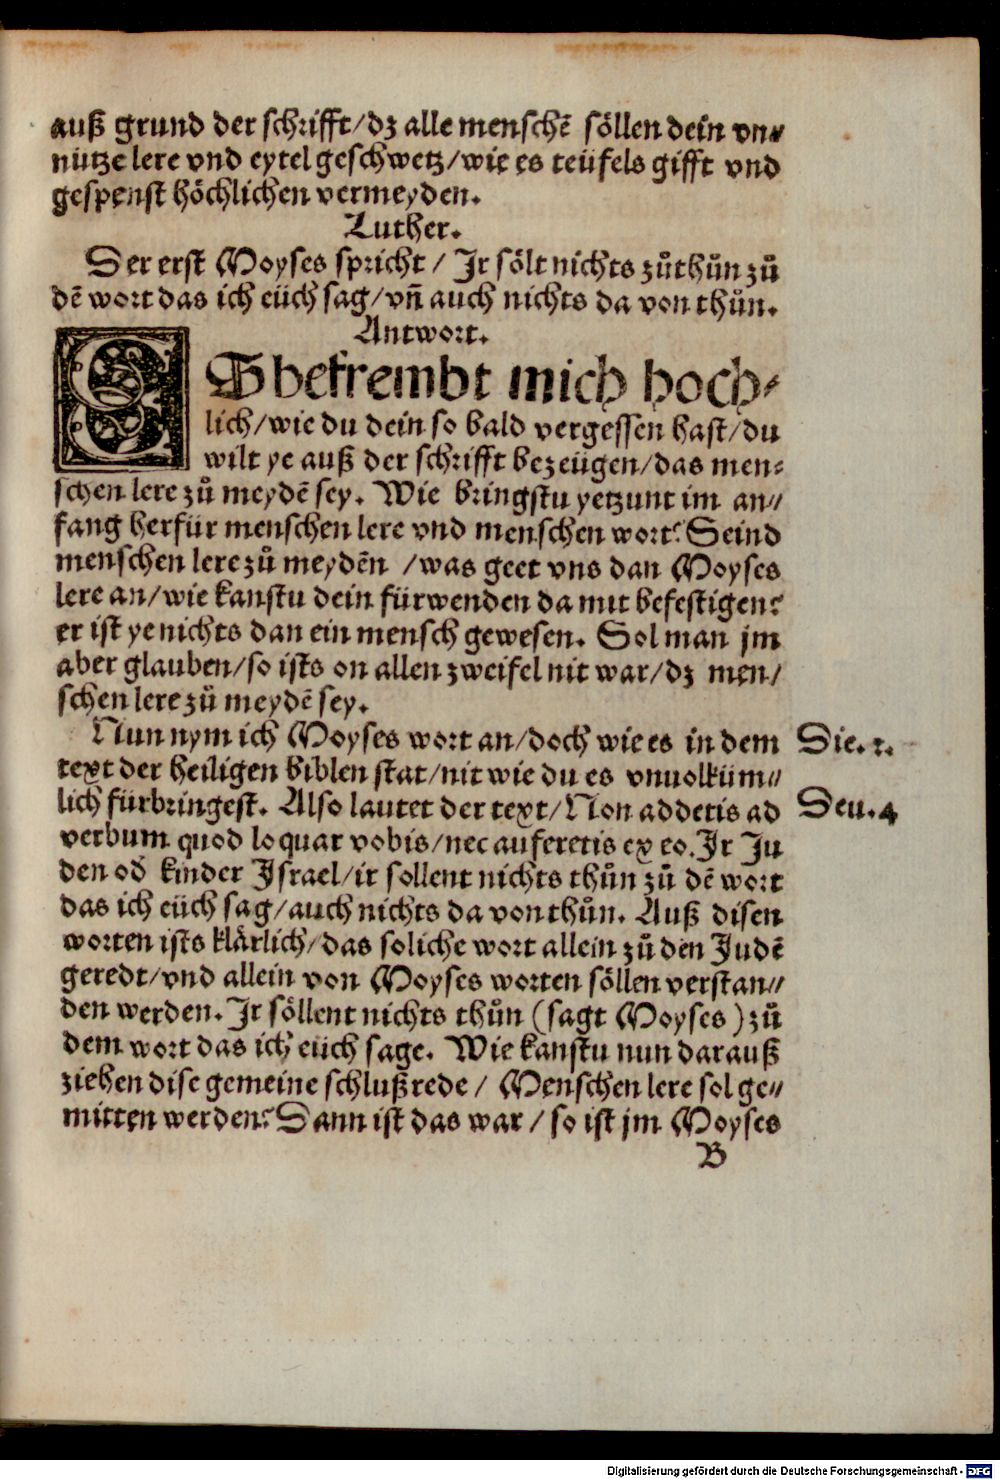 auß grund der schrifft/dz alle menschē söllen dein vn⸗
nütze lere vnd eytel geschwetz/wie es teüfels gifft vnd
gespenst höchlichen vermeyden.
Luther.
Der erst Moyses spricht / Jr sölt nichts zůthůn zů
dē wort das ich eüch sag/vñ auch nichts da von thůn.
Antwort.
ES befrembt mich hoch⸗
lich/wie du dein so bald vergessen hast/du
wilt ye auß der schrifft bezeügen/das men⸗
schen lere zů meydē sey. Wie bringstu yetzunt im an⸗
fang herfür menschen lere vnd menschen wort? Seind
menschen lere zů meydēn /was geet vns dan Moyses
lere an/wie kanstu dein fürwenden da mit befestigen?
er ist ye nichts dan ein mensch gewesen. Sol man jm
aber glauben/so ists on allen zweifel nit war/dz men/
schen lere zů meydē sey.
Nun nym ich Moyses wort an/doch wie es in dem
Die. 1.
text der heiligen biblen stat/nit wie du es vnuolküm⸗
lich fürbringest. Also lautet der text/Non addetis ad
Deu. 4
verbum quod loquar vobis/nec auferetis ex eo. Jr Ju
den od̕ kinder Jsrael/ir sollent nichts thůn zů dē wort
das ich eüch sag/auch nichts da von thůn. Auß disen
worten ists klärlich/das soliche wort allein zů den Judē
geredt/vnd allein von Moyses worten söllen verstan⸗
den werden. Jr söllent nichts thůn (sagt Moyses) zů
dem wort das ich eüch sage. Wie kanstu nun darauß
ziehen dise gemeine schlußrede / Menschen lere sol ge⸗
mitten werden? Dann ist das war / so ist jm Moyses
B
Digitalisierung gefördert durch die Deutsche Forschungsgemeinschaft - DFG